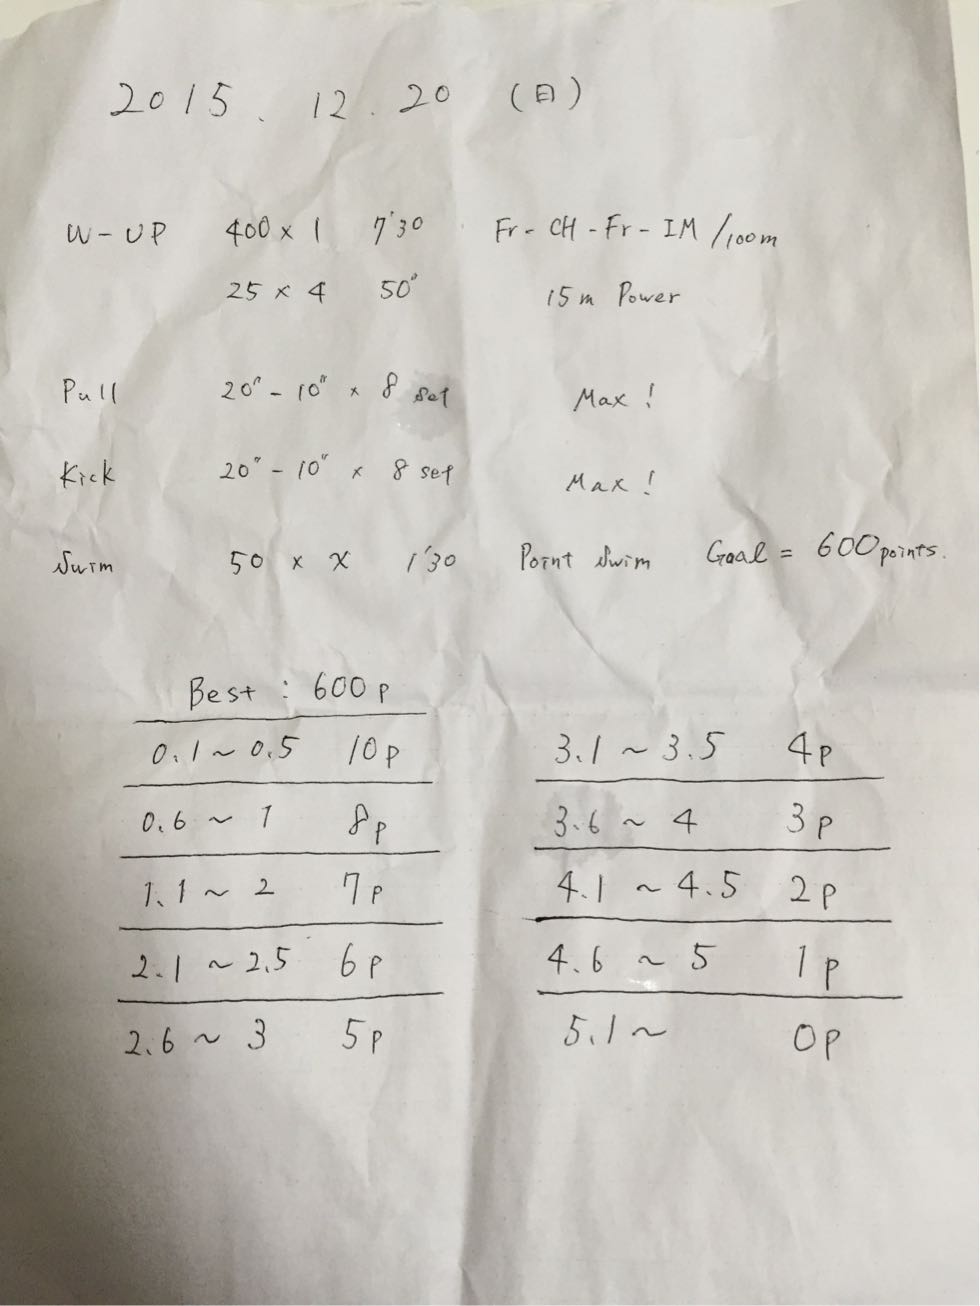 2015.12.20 (日)
W-UP 400×1 7'30 Fr-CH-Fr-IM/100m
25×4 50" 15m Power
Pull 20"-10"×8 set Max!
Kick 20"-10"×8 set Max!
Swim 50×x 1'30 Point Swim Goal=600points.
Best:600p
0.1~0.5 10p
0.6~1 8p
1.1~2 7p
2.1~2.5 6p
2.6~3 5p
3.1~3.5 4p
3.6~4 3p
4.1~4.5 2p
4.6~5 1p
5.1~ 0p